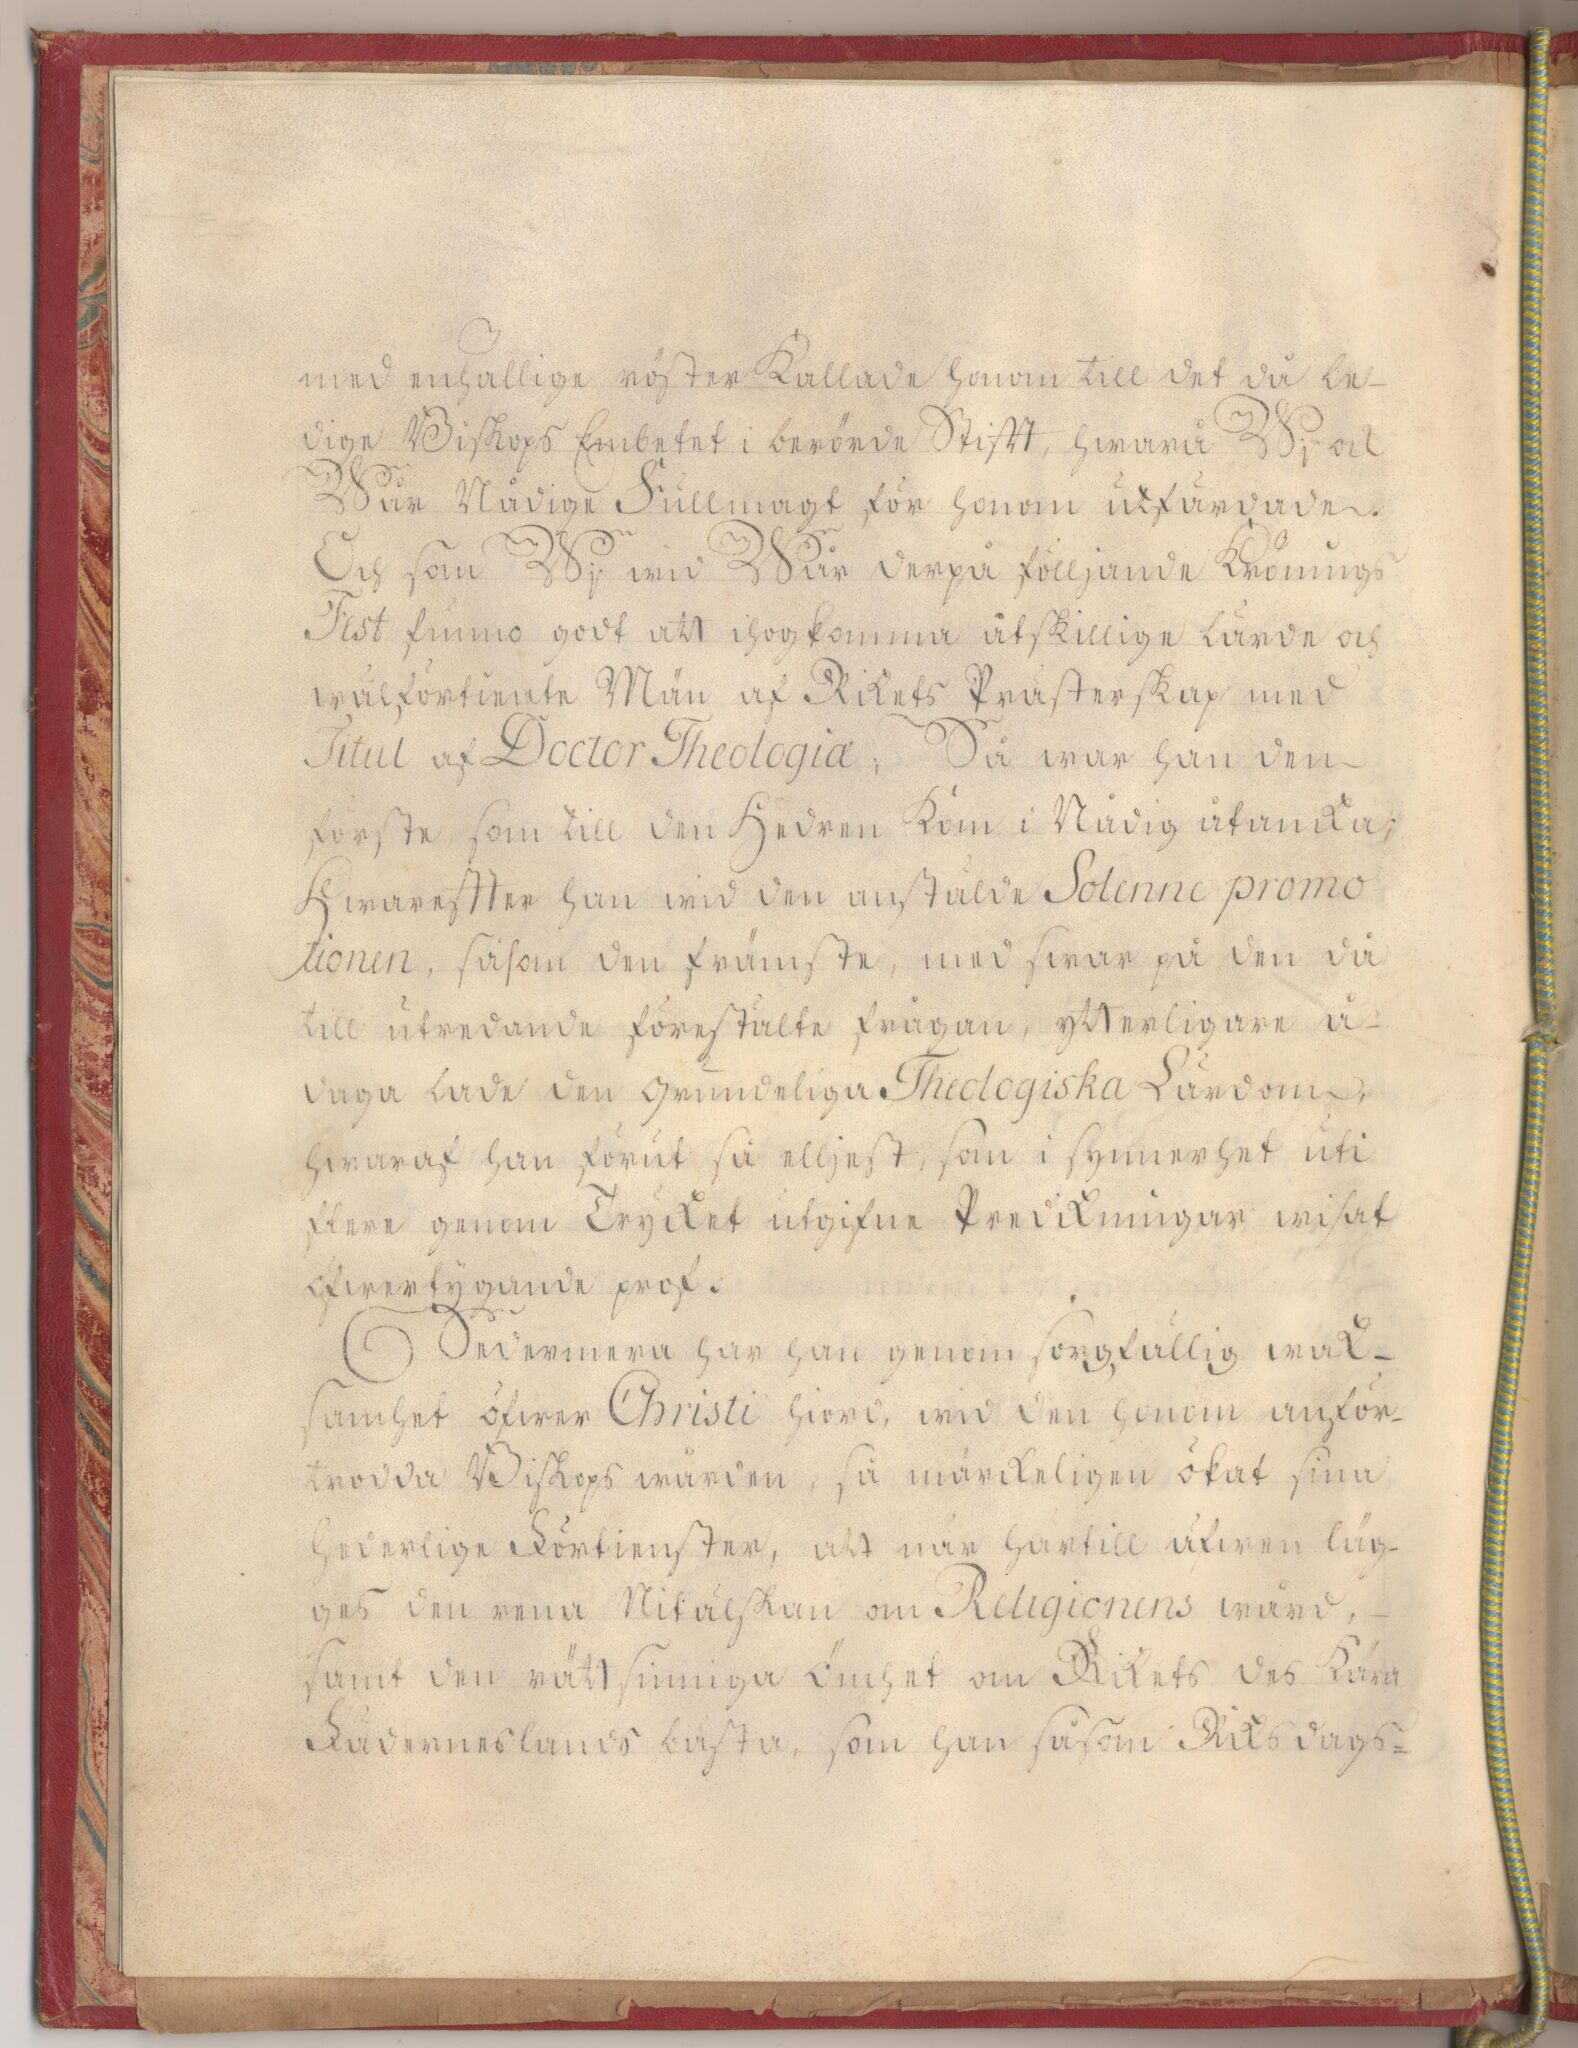 med enhällige röster Kallade honom till det då le-
dige Biskops Embetet i berörde Stift, hwarå Wj ock
Wår Nådige Fullmagt för honom utfärdade.
Och som Wj wid Wår derpå följjande Krönings
Fest funno godt att ihogkomma åtskillige lärde och
wälförtiente Män af Rikets Prästerskap med
Titul af Doctor Theologiæ, Så war han den
förste som till den Hedren Kom i Nådig åtancka;
Hwareftter han wid den anstälde Solenne promo
tionen, såsom den främste, med swar på den då
till utredande förestälte frågan, ytterligare å-
daga lade den grundeliga Theologiska Lärdom,
hwaraf han förut så elljest, som i synnerhet uti
flere genom Trycket utgifne Predickningar wisat
öfwertygande prof.
Sedermera har han genom sorgfällig wack-
samhet öfwer Christi hiord, wid den honom anför-
trodda Biskops wården, så märckeligen ökat sina
hederlige Förtienster, att när härtill äfwen läg-
ges den rena Nitälskan om Religionens wård,
samt den rättsinniga ömhet om Rikets des Kära
Fäderneslands bästa, som han såsom Riksdags=